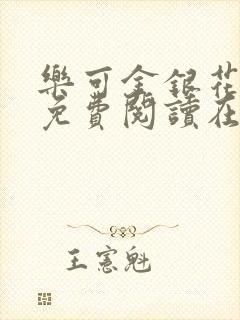 樂可金銀花
免費閱讀在
王憲魁